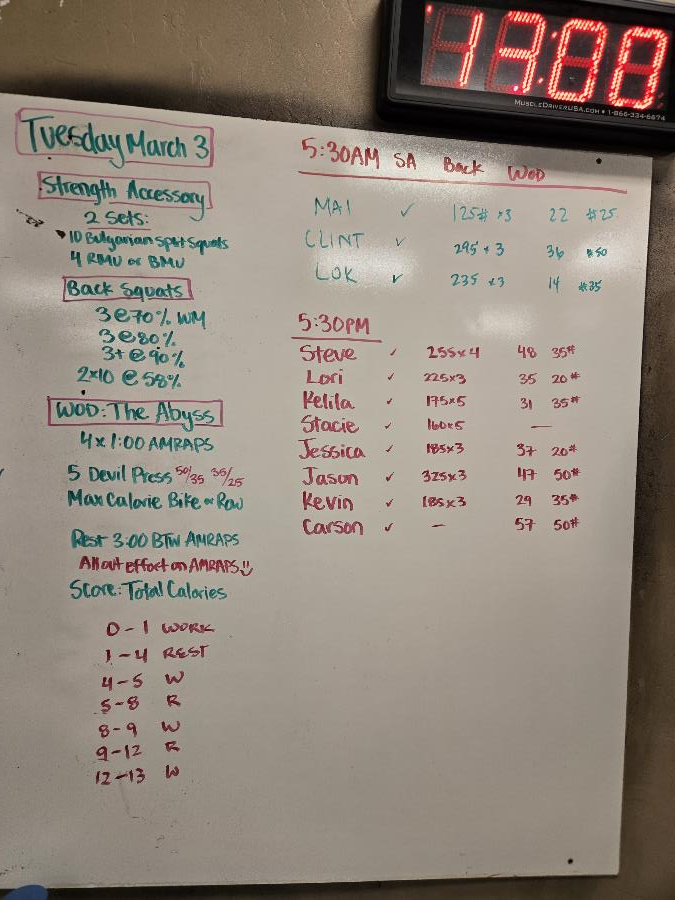 13:00
MUSCLEDRIVERUSA.COM • 1-866-334-6674
Tuesday March 3
Strength Accessory
2 Sets:
10 Bulgarian Split Squats
4 RMU or BMU
Back Squats
3@70% WM
3@80%
3+@90%
2x10 @58%
WOD: The Abyss
4x1:00 AMRAPS
5 Devil Press 50/35 35/25
Max Calorie Bike or Row
Rest 3:00 BTW AMRAPS
All out effort on AMRAPS
Score: Total Calories
0-1 WORK
1-4 REST
4-5 W
5-8 R
8-9 W
9-12 R
12-13 W
5:30AM SA Back WOD
MAI ✓ 125# x3 22 #25
CLINT ✓ 295 x 3 36 #50
LOK ✓ 235 x3 14 #35
5:30PM
Steve ✓ 255x4 48 35#
Lori ✓ 225x3 35 20#
Kelila ✓ 175x5 31 35#
Stacie ✓ 160x5 —
Jessica ✓ 185x3 37 20#
Jason ✓ 325x3 47 50#
Kevin ✓ 185x3 29 35#
Carson ✓ - 57 50#